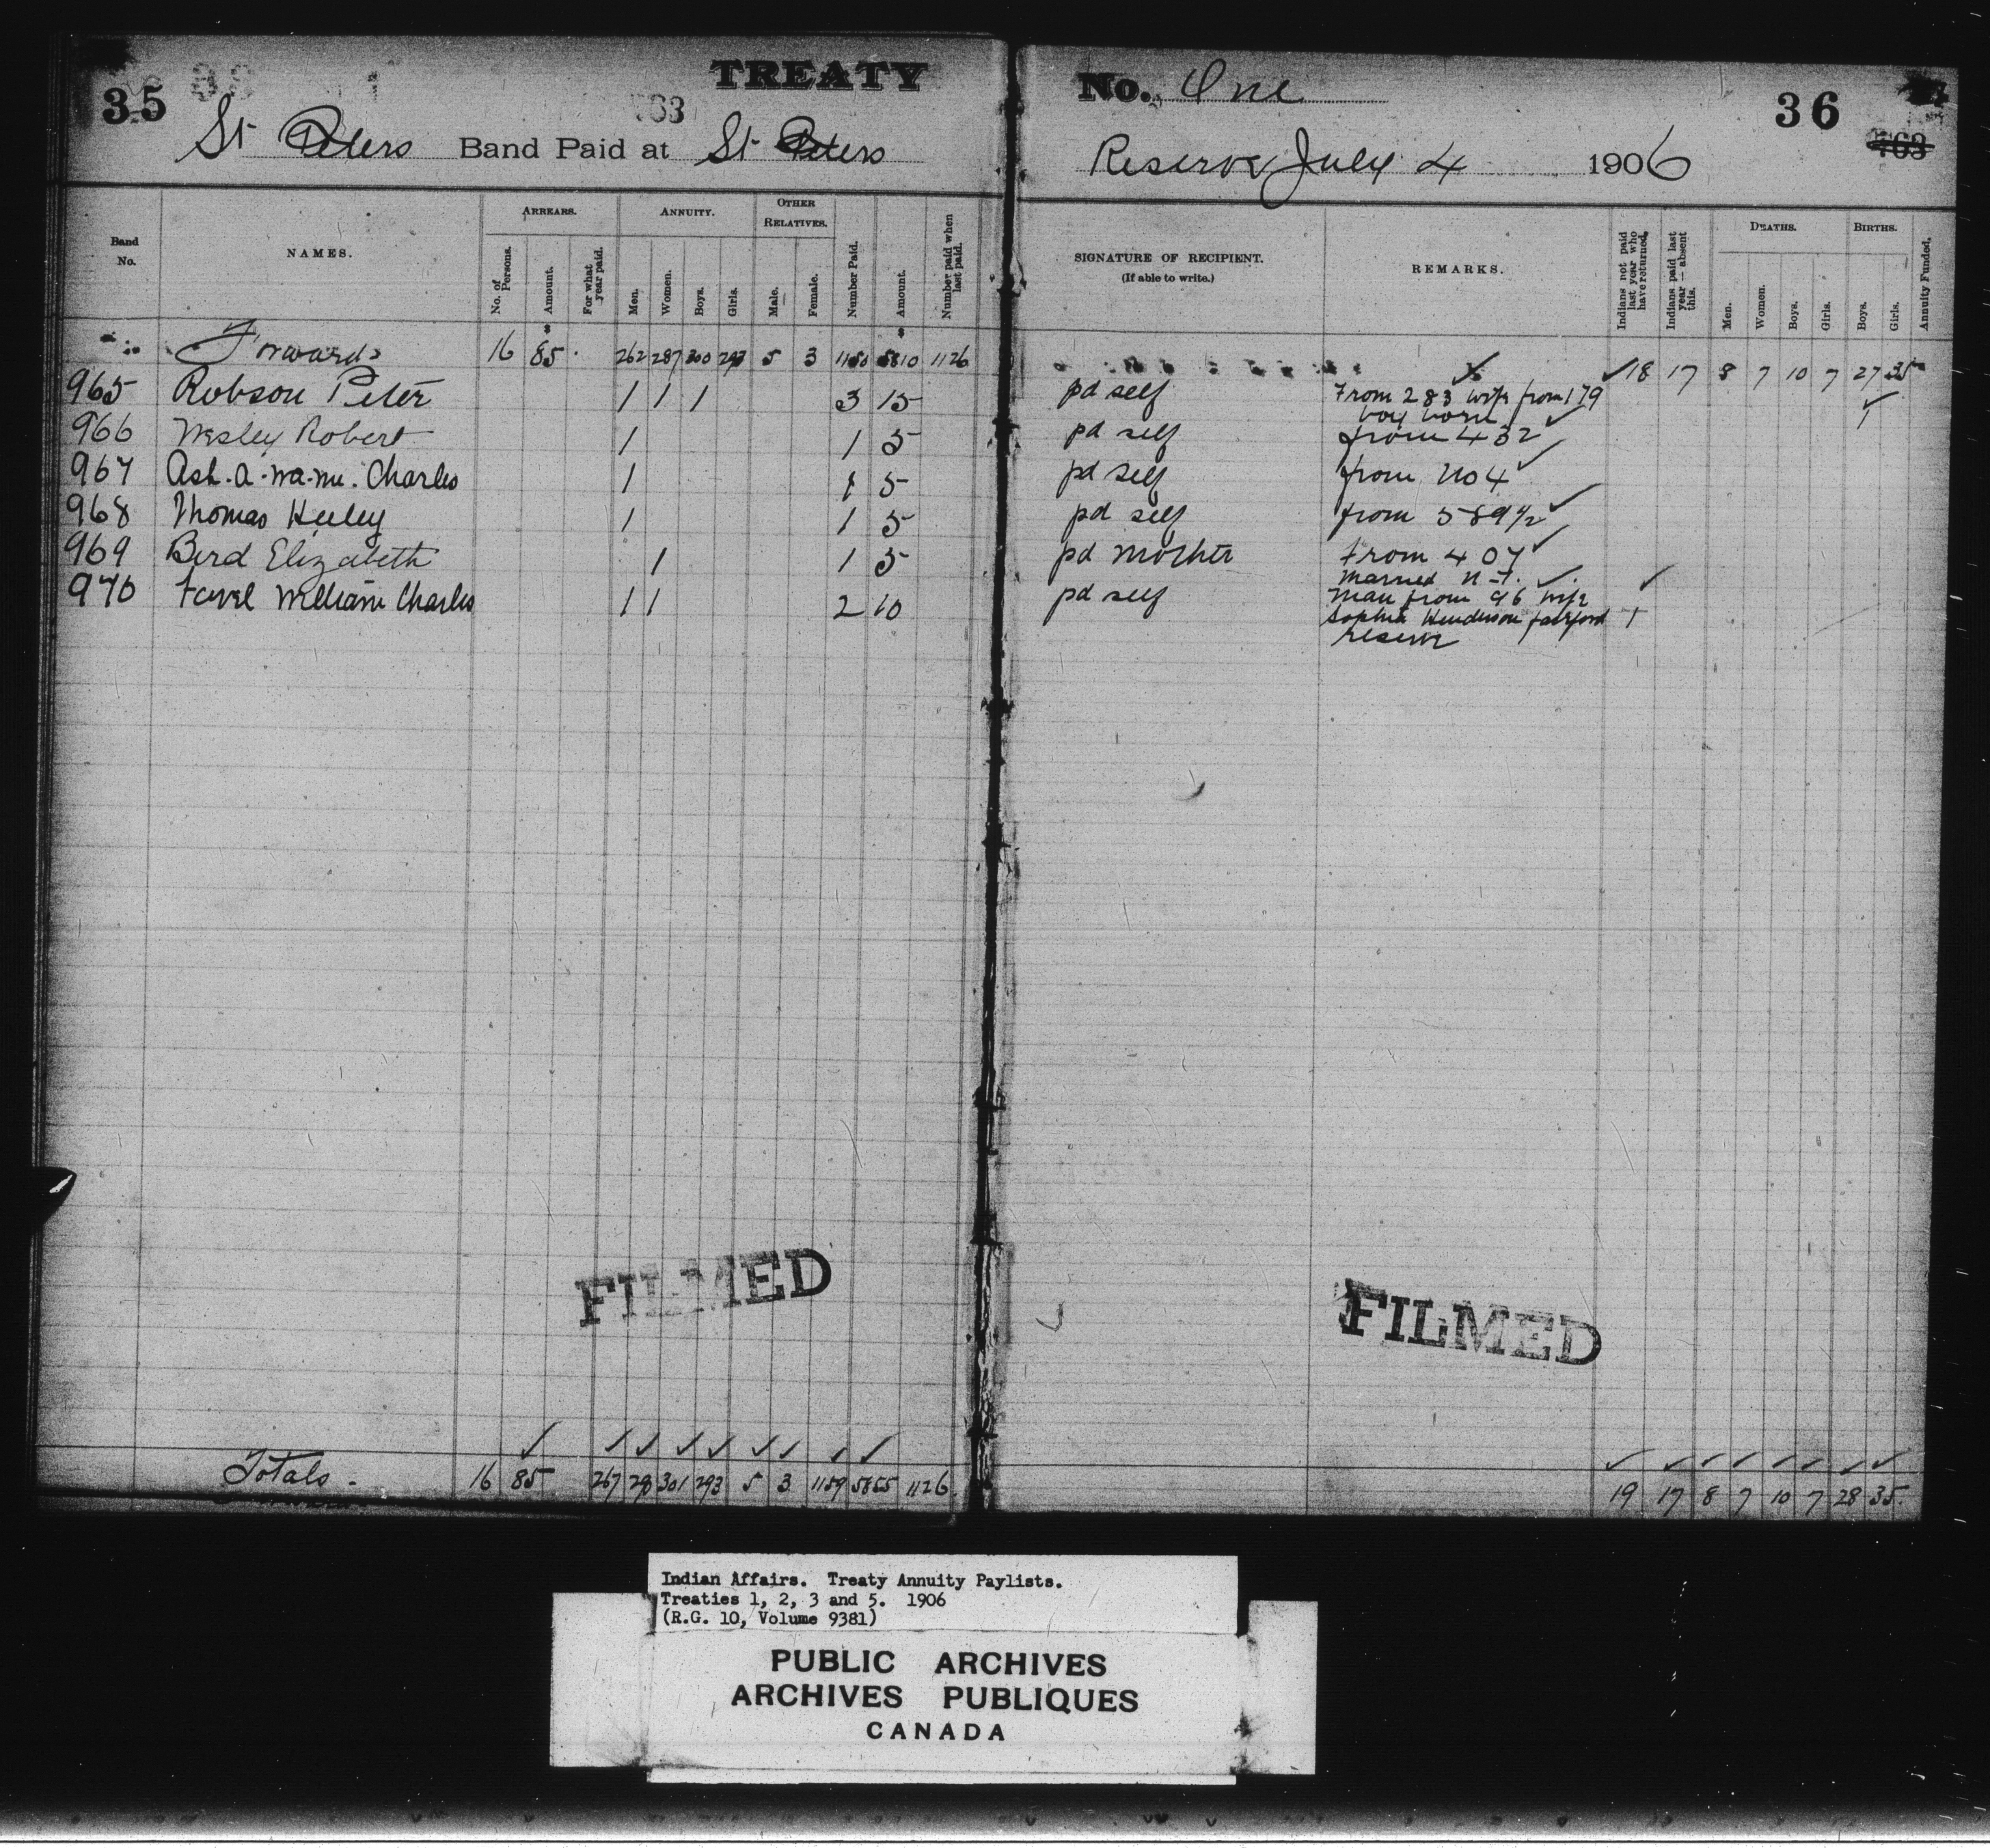 TREATY No. One
35
63
36
763
St Peters Band Paid at St Peters Reserve July 4 1906
Band No. NAMES. ARREARS. ANNUITY. OTHER RELATIVES.
No. of Persons. Amount. For what year paid. Men. Women. Boys. Girls. Male. Female. Number Paid. Amount. Number paid when last paid.
SIGNATURE OF RECIPIENT. (If able to write.) REMARKS. Indians not paid last year who have returned. Indians paid last year — absent this. DEATHS. BIRTHS. Annuity Funded.
Men. Women. Boys. Girls. Boys. Girls.
Forward 16 85 262 287 300 293 5 3 1150 5810 1126 18 17 8 7 10 7 27 35
965 Robson Peter 1 1 1 3 15 pd self From 283 wife from 179 1
boy born
966 Wesley Robert 1 1 5 pd self from 432
967 Ash-a-wa-nu. Charles 1 1 5 pd self from No 4
968 Thomas Heeley 1 1 5 pd self from 589 1/2
969 Bird Elizabeth 1 1 5 pd Mother From 407
married n-t.
970 Favel William Charles 1 1 2 10 pd self Man from 96 wife
Sophia Henderson fairford 1
reserve
FILMED
FILMED
Totals - 16 85 267 290 301 293 5 3 1159 5855 1126 19 17 8 7 10 7 28 35
Indian Affairs. Treaty Annuity Paylists.
Treaties 1, 2, 3 and 5. 1906
(R.G. 10, Volume 9381)
PUBLIC ARCHIVES
ARCHIVES PUBLIQUES
CANADA